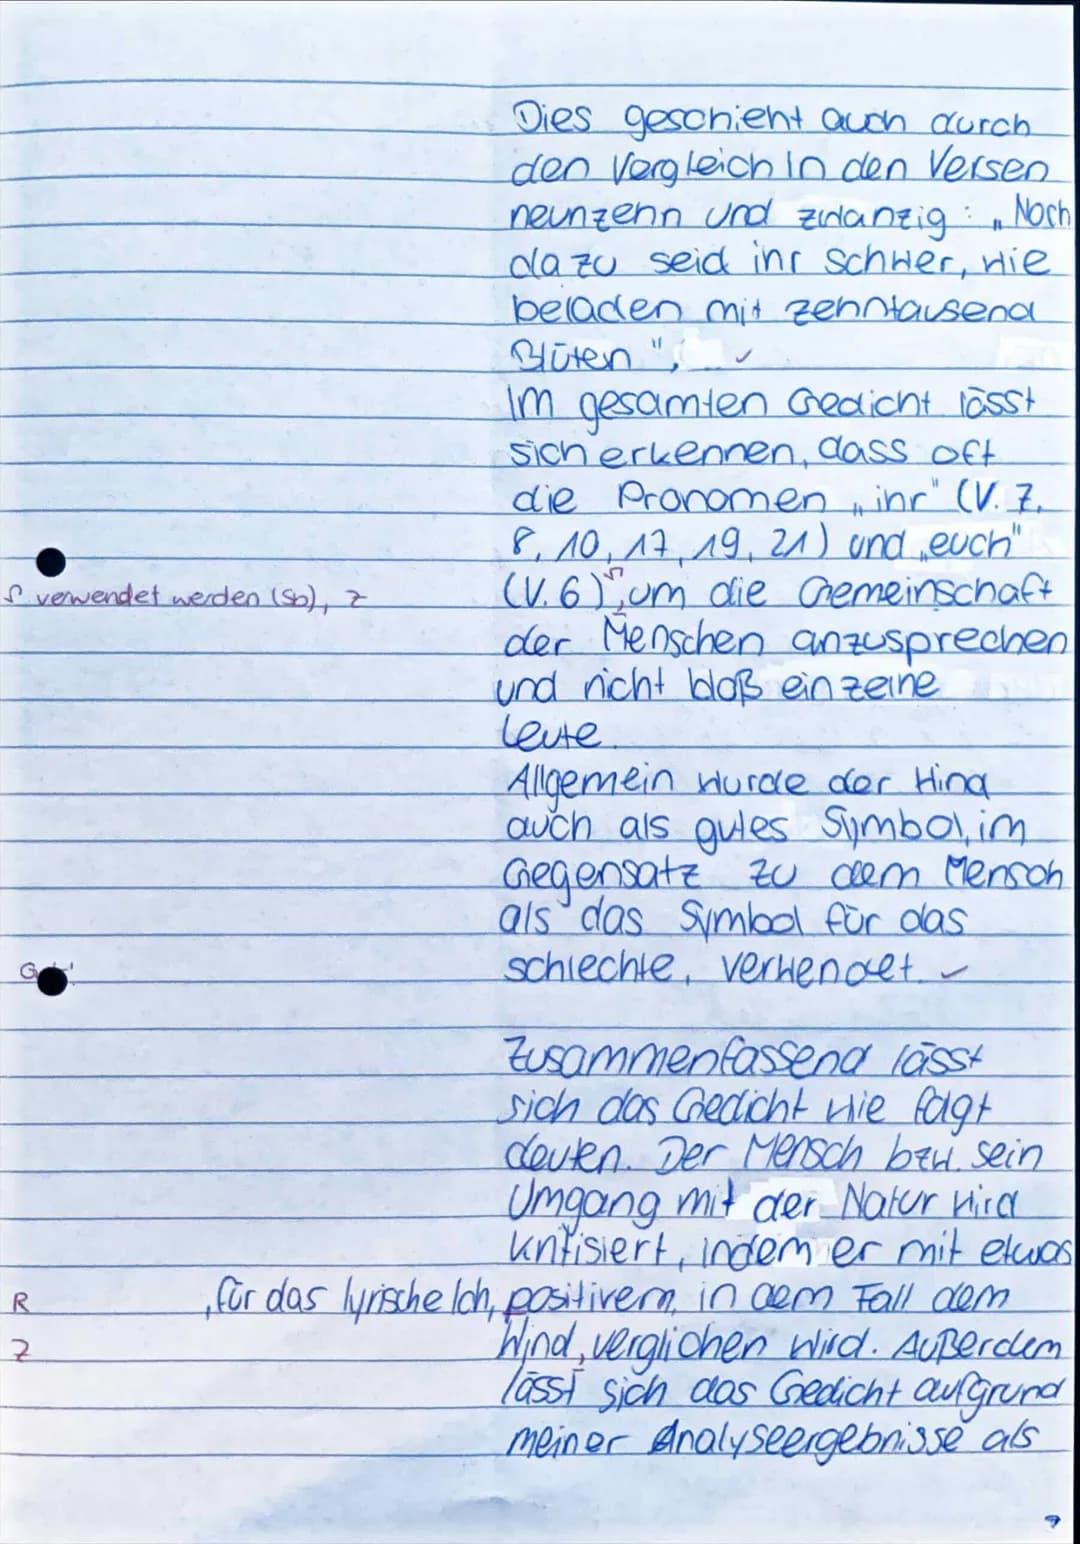 Dies geschieht auch durch
den Vergleich in den Versen
neunzehn und zwanzig: „Noch
dazu seid ihr schwer, wie
beladen mit zehntausend
Blüten", ✓
Im gesamten Gedicht lässt
sich erkennen, dass oft
die Pronomen „ihr" (V. 7,
8, 10, 17, 19, 21) und „euch"
verwendet werden (Sb), Z
(V. 6), um die Gemeinschaft
der Menschen anzusprechen
und nicht bloß einzelne
Leute.
Allgemein wurde der Wind
auch als gutes Symbol, im
Gegensatz zu dem Mensch
als das Symbol für das
schlechte, verwendet. ✓
Zusammenfassend lässt
sich das Gedicht wie folgt
deuten. Der Mensch bzw. sein
Umgang mit der Natur wird
kritisiert, indem er mit etwas
R , für das lyrische Ich, positivem, in dem Fall dem
Z Wind, verglichen wird. Außerdem
lässt sich das Gedicht aufgrund
meiner Analyseergebnisse als